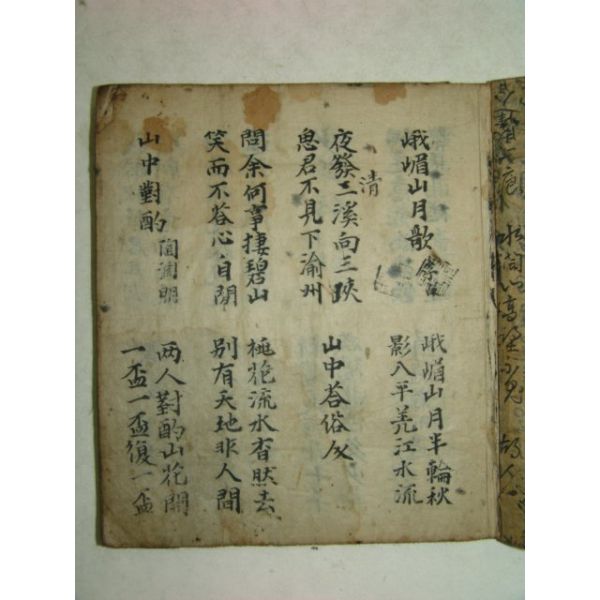 峨嵋山月歌
峨嵋山月半輪秋
影入平羌江水流
清
夜發三溪向三峽
思君不見下渝州
山中荅俗人
問余何事捿碧山
笑而不荅心自閑
桃花流水杳然去
別有天地非人間
山中對酌 陶淵明
两人對酌山花開
一盃一盃復一盃